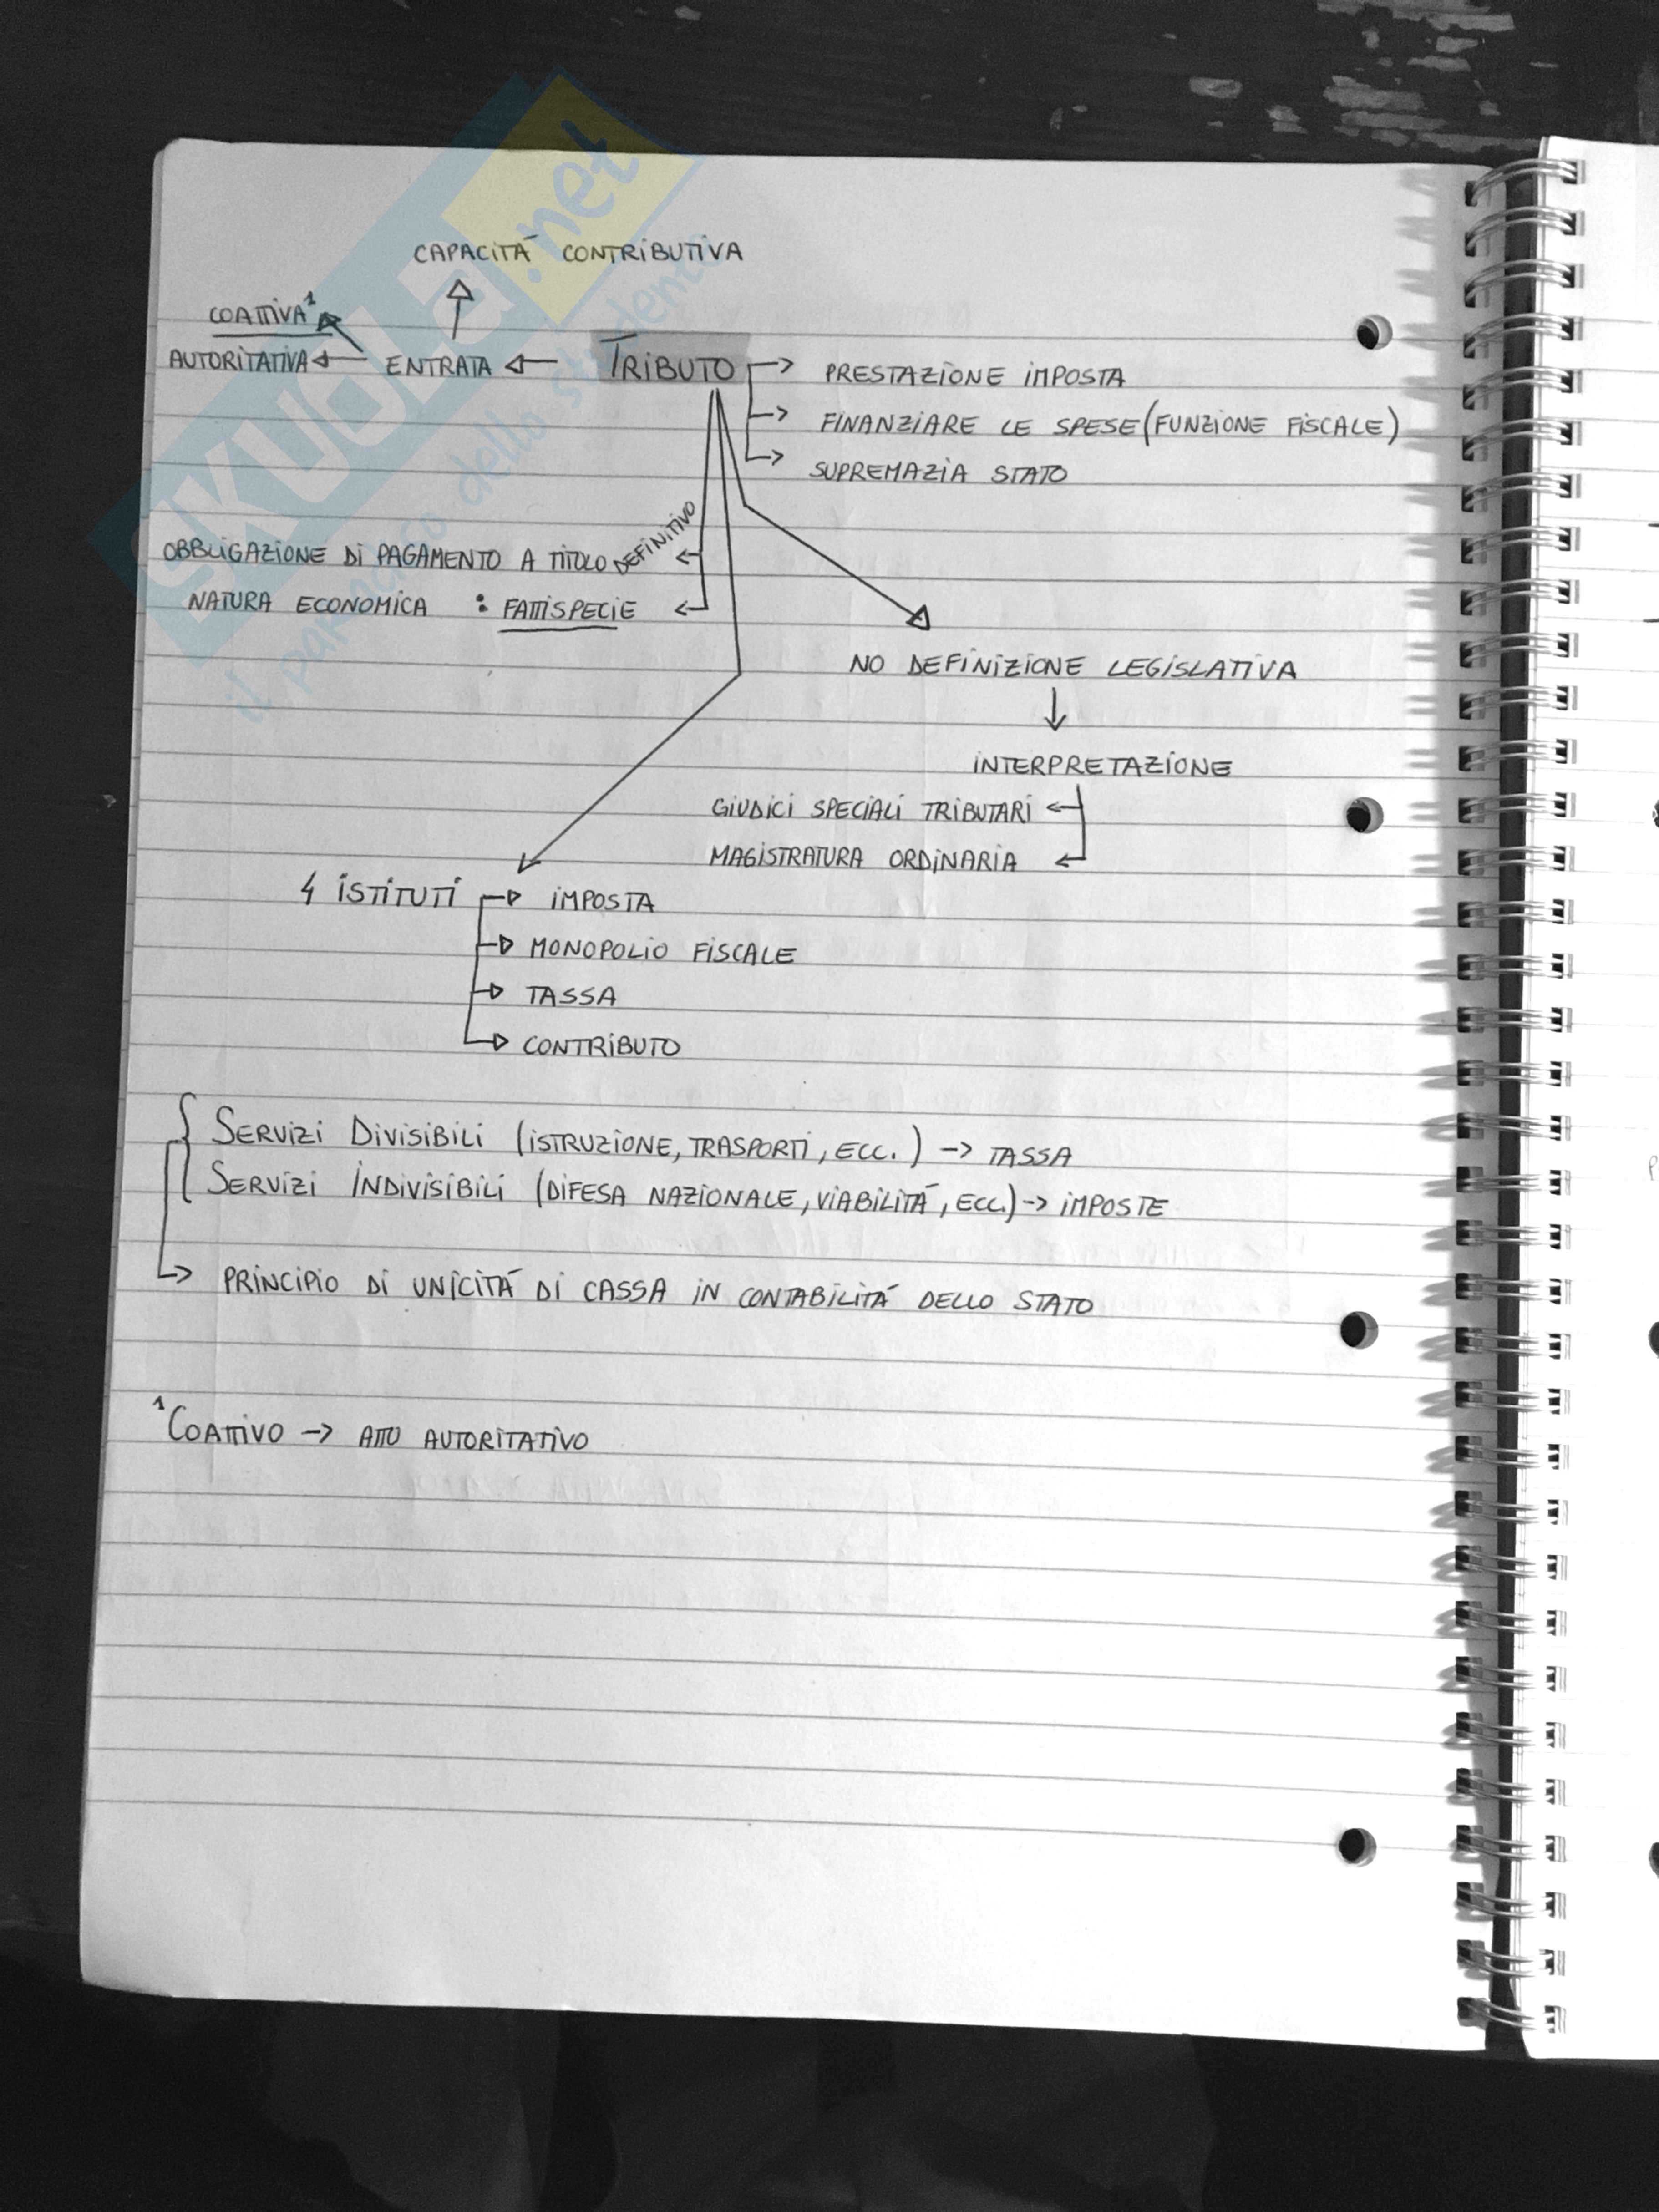 SKUOLA.net
il paradiso dello studente
CAPACITÁ CONTRIBUTIVA
COATTIVA¹
AUTORITATIVA ENTRATA TRIBUTO PRESTAZIONE IMPOSTA
FINANZIARE LE SPESE (FUNZIONE FISCALE)
SUPREMAZIA STATO
OBBLIGAZIONE DI PAGAMENTO A TITOLO DEFINITIVO
NATURA ECONOMICA : FATTISPECIE
NO DEFINIZIONE LEGISLATIVA
INTERPRETAZIONE
GIUDICI SPECIALI TRIBUTARI
MAGISTRATURA ORDINARIA
4 ISTITUTI IMPOSTA
MONOPOLIO FISCALE
TASSA
CONTRIBUTO
SERVIZI DIVISIBILI (ISTRUZIONE, TRASPORTI, ECC.) -> TASSA
SERVIZI INDIVISIBILI (DIFESA NAZIONALE, VIABILITÁ, ECC.) -> IMPOSTE
-> PRINCIPIO DI UNICITÁ DI CASSA IN CONTABILITÁ DELLO STATO
¹COATTIVO -> ATTO AUTORITATIVO